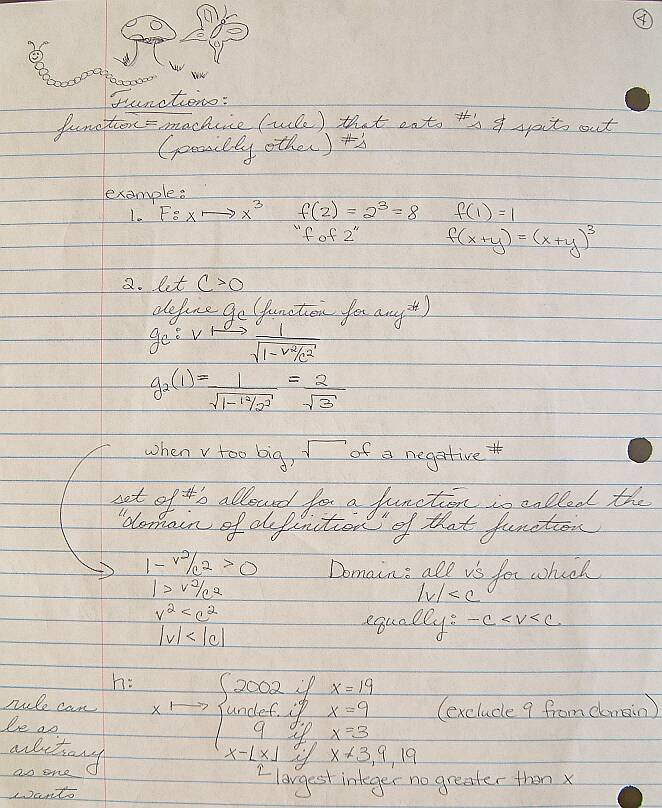 4
Functions:
function = machine (rule) that eats #'s & spits out
(possibly other) #'s
example:
1. F: x ↦ x³ f(2) = 2³ = 8 f(1) = 1
"f of 2" f(x+y) = (x+y)³
2. let C > 0
define g_c (function for any #)
g_c : v ↦ 1/√(1-v²/c²)
g₂(1) = 1/√(1-1²/2²) = 2/√3
when v too big, √ of a negative #
set of #'s allowed for a function is called the
"domain of definition" of that function
1 - v²/c² > 0 Domain: all v's for which
1 > v²/c² |v| < c
v² < c² equally: -c < v < c
|v| < |c|
h:
x ↦ { 2002 if x = 19
undef. if x = 9 (exclude 9 from domain)
9 if x = 3
x-⌊x⌋ if x ≠ 3, 9, 19
↑ largest integer no greater than x
rule can
be as
arbitrary
as one
wants